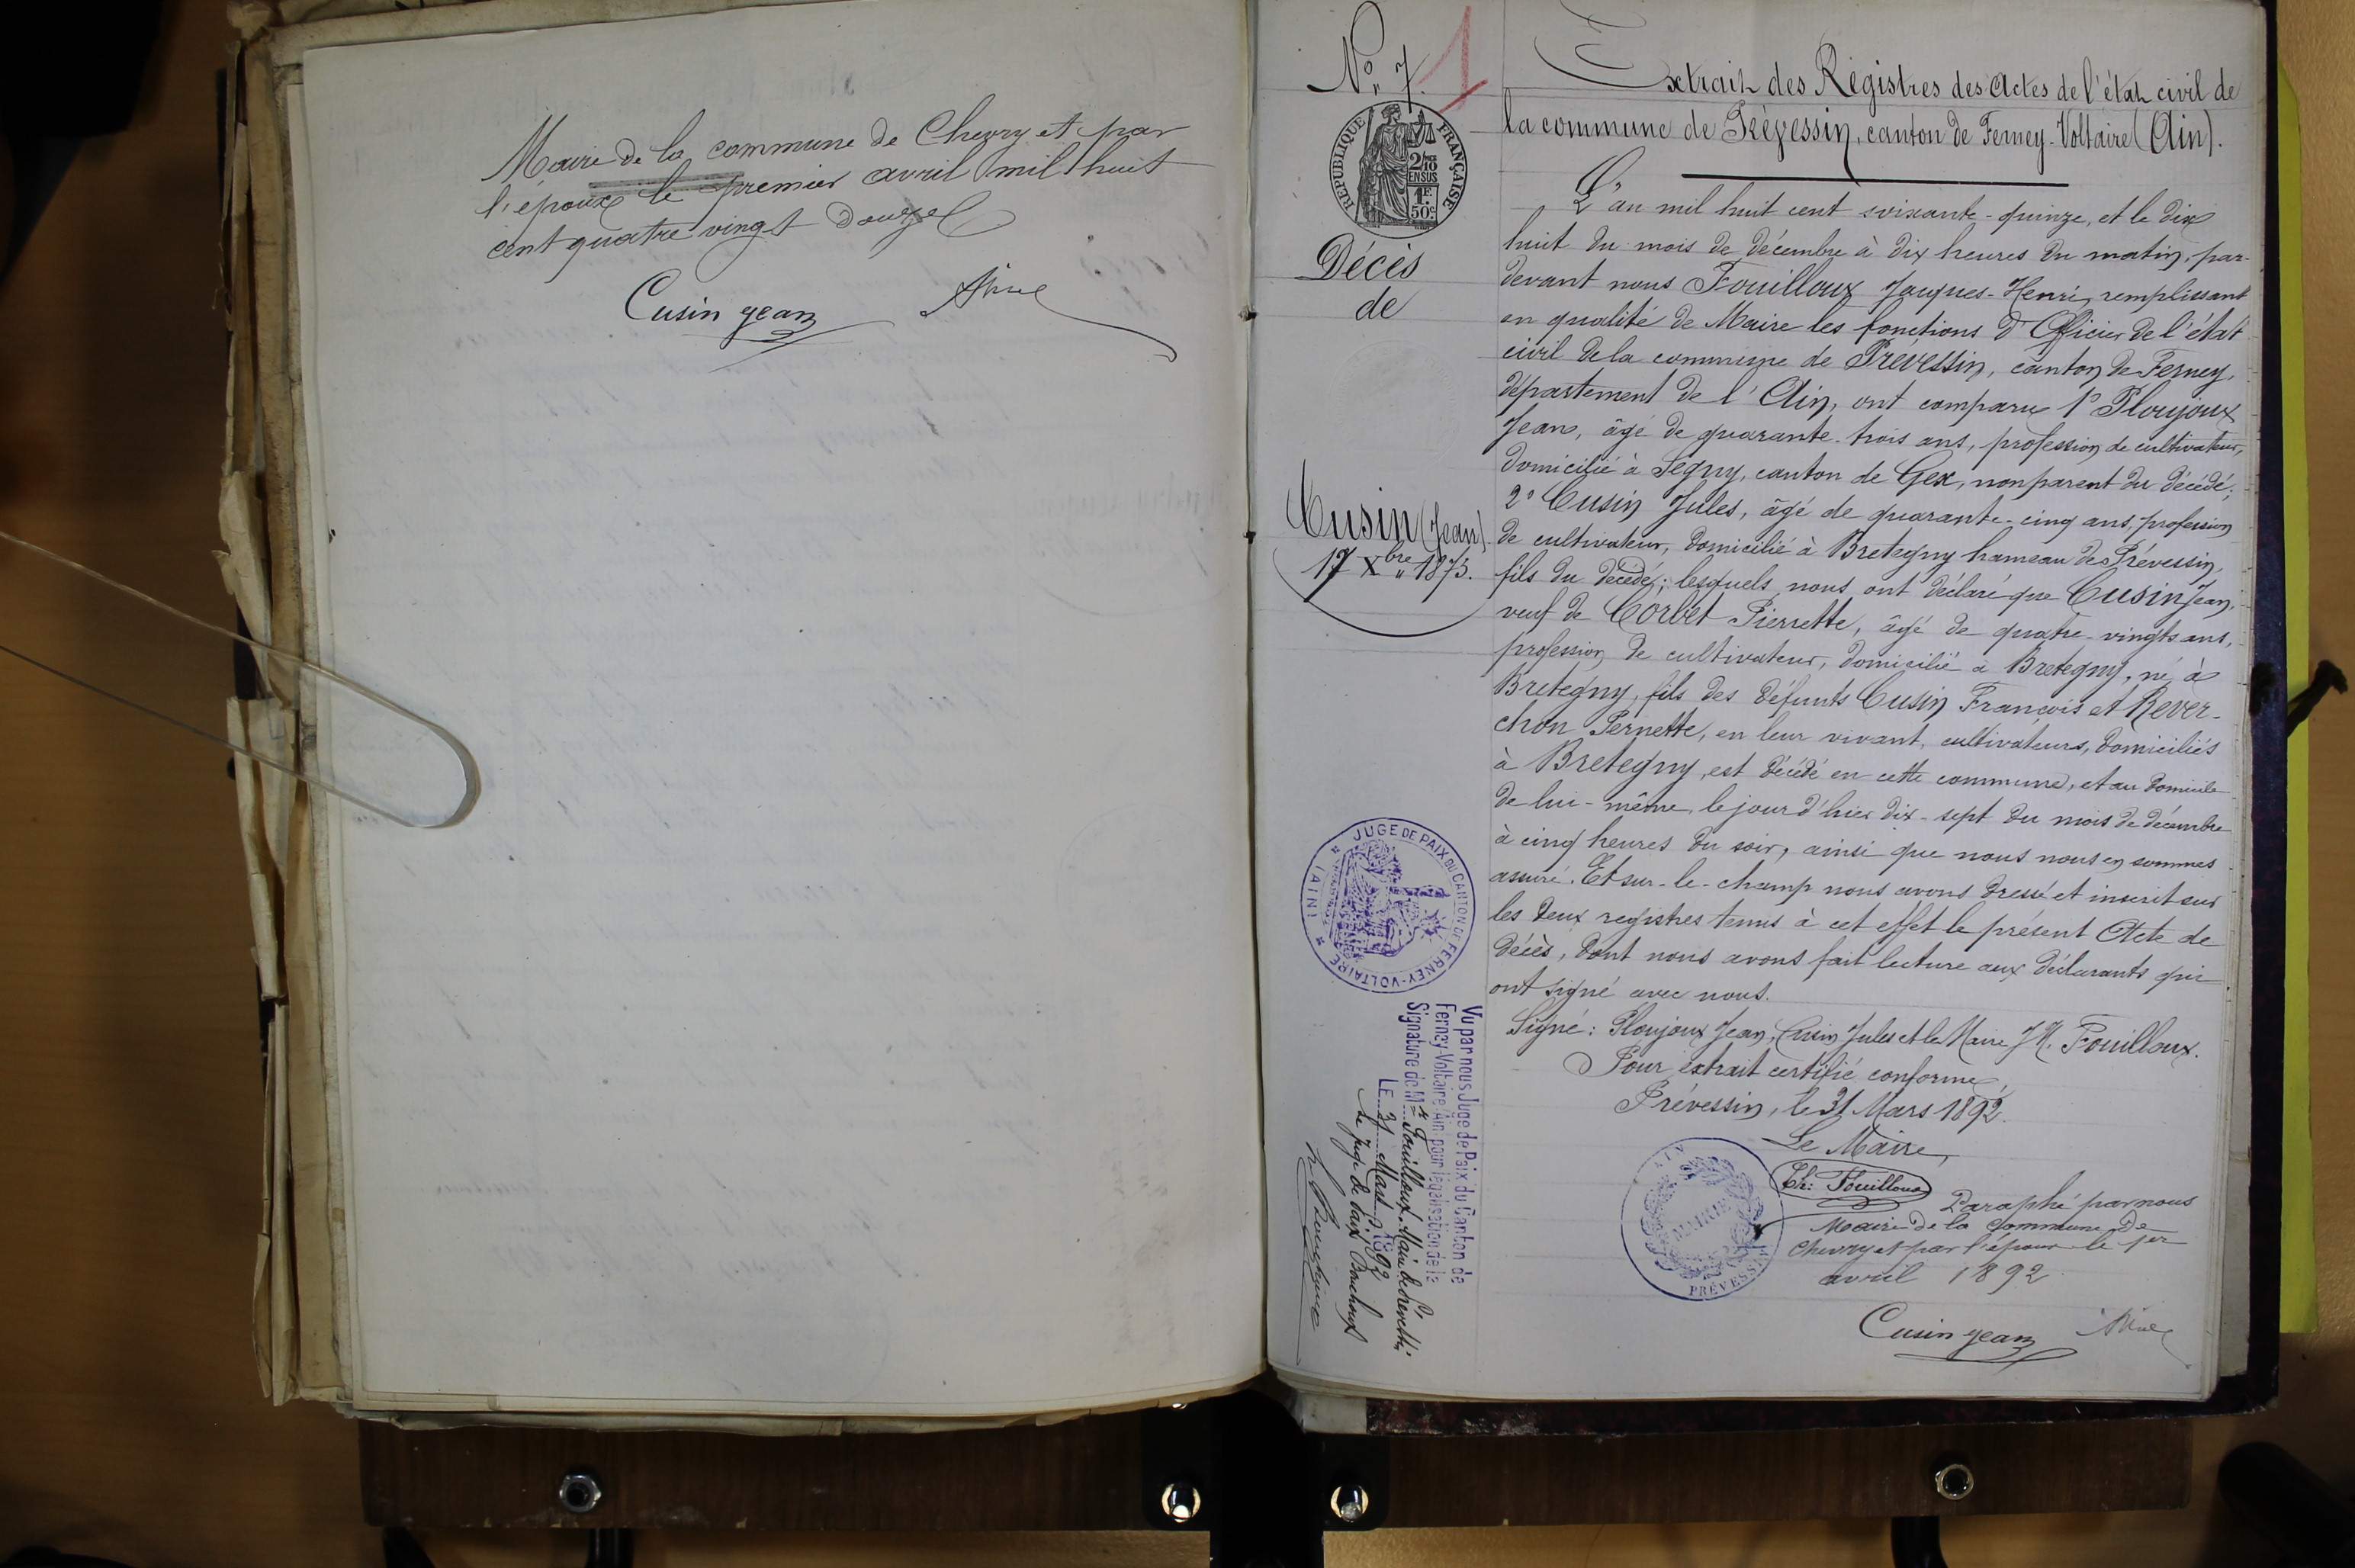 Maire de la commune de Chevry et par
l'époux le premier avril mil huit
cent quatre vingt douze
Cusin Jean
N° 7. 1
REPUBLIQUE FRANÇAISE
2/10
EN SUS
1F.
50c
Décès
de
Cusin (Jean)
17 Xbre 1875.
Extrait des Registres des Actes de l'état civil de
la commune de Prévessin, canton de Ferney-Voltaire (Ain).
L'an mil huit cent soixante-quinze, et le dix
huit du mois de décembre à dix heures du matin, par-
devant nous Fouilloux Jacques-Henri, remplissant
en qualité de Maire les fonctions d'Officier de l'état
civil de la commune de Prévessin, canton de Ferney,
département de l'Ain, ont comparu 1° Ploujoux
Jean, âgé de quarante-trois ans, profession de cultivateur,
domicilié à Segny, canton de Gex, non parent du décédé;
2° Cusin Jules, âgé de quarante-cinq ans, profession
de cultivateur, domicilié à Bretegny hameau de Prévessin,
fils du décédé; lesquels nous ont déclaré que Cusin Jean,
veuf de Corbet Pierrette, âgé de quatre-vingts ans,
profession de cultivateur, domicilié à Bretegny, né à
Bretegny, fils des défunts Cusin François et Rever-
chon Pernette, en leur vivant, cultivateurs, domiciliés
à Bretegny, est décédé en cette commune, et au domicile
de lui-même, le jour d'hier dix-sept du mois de décembre
à cinq heures du soir, ainsi que nous nous en sommes
assuré. Et sur-le-champ nous avons dressé et inscrit sur
les deux registres tenus à cet effet le présent Acte de
décès, dont nous avons fait lecture aux déclarants qui
ont signé avec nous.
Signé: Ploujoux Jean, Cusin Jules et le Maire J.H. Fouilloux.
Pour extrait certifié conforme,
Prévessin, le 31 Mars 1892.
Le Maire,
Ch: Fouilloux
Paraphé par nous
Maire de la Commune de
Chevry et par l'époux le 1er
avril 1892
Cusin Jean
JUGE DE PAIX DU CANTON DE FERNEY-VOLTAIRE (AIN)
Vu par nous Juge de Paix du Canton de
Ferney-Voltaire Ain pour légalisation de la
Signature de Mr Fouilloux, Maire de Prévessin
LE 31 Mars 1892
Le juge de Paix
AIN
MAIRIE
PRÉVESSIN